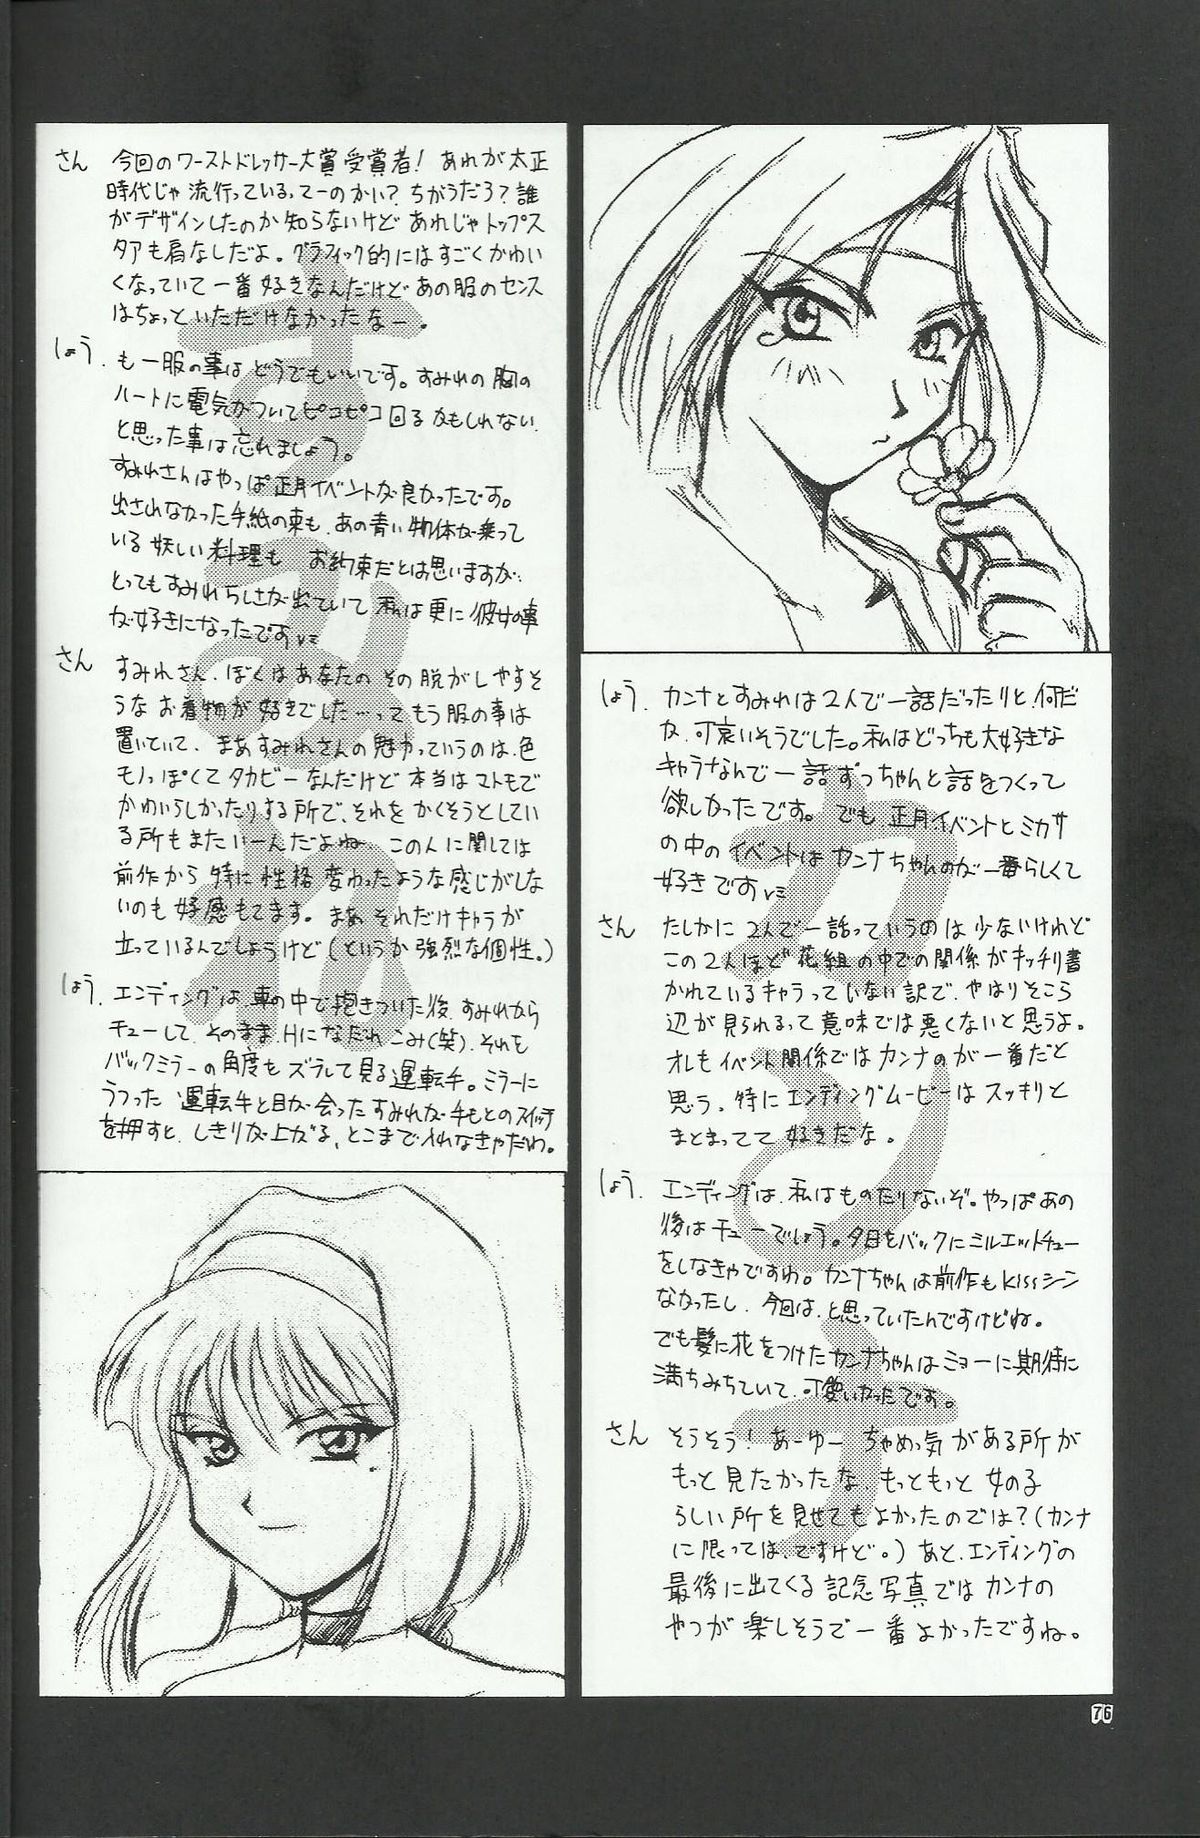 さん 今回のワーストドレッサー大賞受賞者! あれが太正
時代じゃ流行っているってーのかい? ちがうだろ? 誰
がデザインしたのか知らないけど あれじゃトップス
タアも肩なしだよ。グラフィック的にはすごくかわい
くなっていて一番好きなんだけど あの服のセンス
はちょっといただけなかったなー。
しょう. もー服の事はどうでもいいです。すみれの胸の
ハートに電気がついてピコピコ回るかもしれない
と思った事は忘れましょう。
すみれさんはやっぱ正月イベントが良かったです。
出されなかった手紙の束も、あの青い物体が乗って
いる妖しい料理も お約束だとは思いますが、
とってもすみれらしさが出ていて 私は更に彼女の事
が好きになったです
さん すみれさん、ぼくはあなたの その脱がしやすそ
うな お着物が好きでした…ってもう服の事は
置いていて、まあすみれさんの魅力っていうのは、色
モノっぽくてタカビーなんだけど 本当はマトモで
かわいらしかったりする所で、それをかくそうとしてい
る所もまたいーんだよね この人に関しては
前作から 特に性格変わったような感じがしな
いのも 好感もてます。まあ それだけキャラが
立っているんでしょうけど(というか 強烈な個性。)
しょう. エンディングは、車の中で抱きついた後、すみれから
チューして、そのままHになだれこみ(笑)、それを
バックミラーの角度をズラして見る運転手。ミラーに
うつった 運転手と目が会ったすみれが手もとのスイッチ
を押すと、しきりが上がる、とこまで入れなきゃだわ。
すみれ
しょう. カンナとすみれは2人で一話だったりと、何だ
か、可哀いそうでした。私はどっちも大好きな
キャラなんで一話ずつちゃんと話をつくって
欲しかったです。でも 正月イベントとミカサ
の中のイベントはカンナちゃんのが一番らしくて
好きです
さん たしかに 2人で一話っていうのは少ないけれど
この2人ほど花組の中での関係がキッチリ書
かれているキャラっていない訳で、やはりそこら
辺が見られるって意味では悪くないと思うよ。
オレもイベント関係ではカンナのが一番だと
思う。特にエンディングムービーはスッキリと
まとまってて 好きだな。
しょう. エンディングは、私はものたりないぞ。やっぱあの
後はチューでしょう。夕日をバックにシルエットチュー
をしなきゃですわ。カンナちゃんは前作もkissシーン
なかったし、今回は、と思っていたんですけどね。
でも髪に花をつけたカンナちゃんはミョーに期待に
満ちみちていて、可愛いかったです。
さん そうそう! あーゆー ちゃめっ気がある所が
もっと見たかったな もっともっと 女の子
らしい所を見せてもよかったのでは?(カンナ
に限っては、ですけど。) あと、エンディングの
最後に出てくる記念写真ではカンナの
やつが楽しそうで一番よかったですね。
カンナ
76